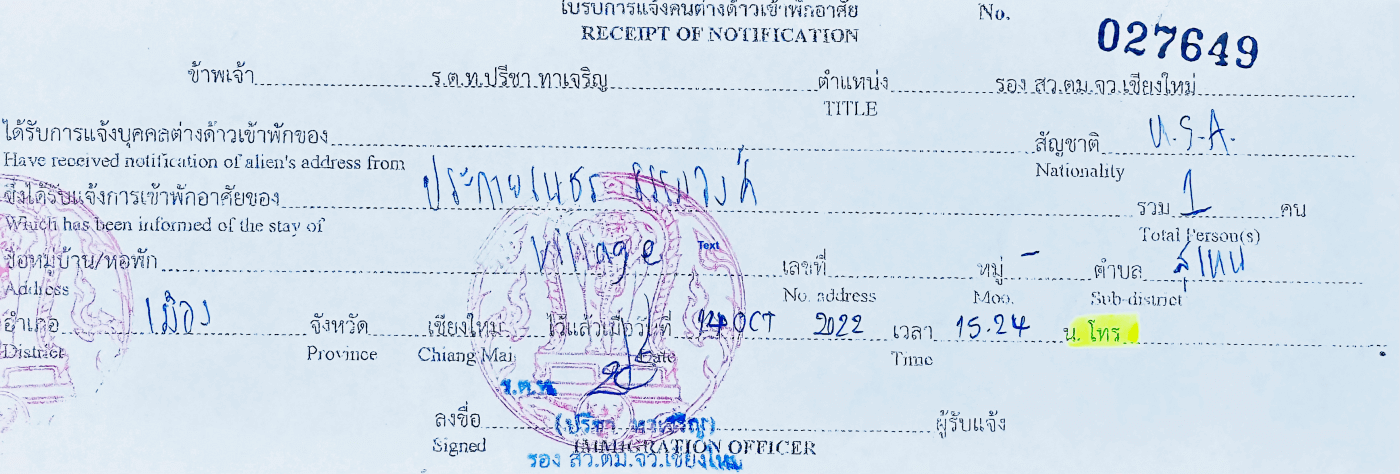 ใบรับการแจ้งคนต่างด้าวเข้าพักอาศัย No.
RECEIPT OF NOTIFICATION 027649
ข้าพเจ้า ร.ต.ท.ปรีชา ทาเจริญ ตำแหน่ง รอง สว.ตม.จว.เชียงใหม่
TITLE
ได้รับการแจ้งบุคคลต่างด้าวเข้าพักของ สัญชาติ U.S.A.
Have received notification of alien's address from Nationality
ซึ่งได้รับแจ้งการเข้าพักอาศัยของ ประกายเนชร รวม 1 คน
Which has been informed of the stay of Total Person(s)
Village Text
ชื่อหมู่บ้าน/หอพัก เลขที่ หมู่ - ตำบล สุเทพ
Address No. address Moo. Sub-district
อำเภอ เมือง จังหวัด เชียงใหม่ ไว้แล้วเมื่อวันที่ 14 OCT 2022 เวลา 15.24 น. โทร
District Province Chiang Mai Date Time
ร.ต.ท.
ลงชื่อ ผู้รับแจ้ง
(ปรีชา ทาเจริญ)
Signed IMMIGRATION OFFICER
รอง สว.ตม.จว.เชียงใหม่